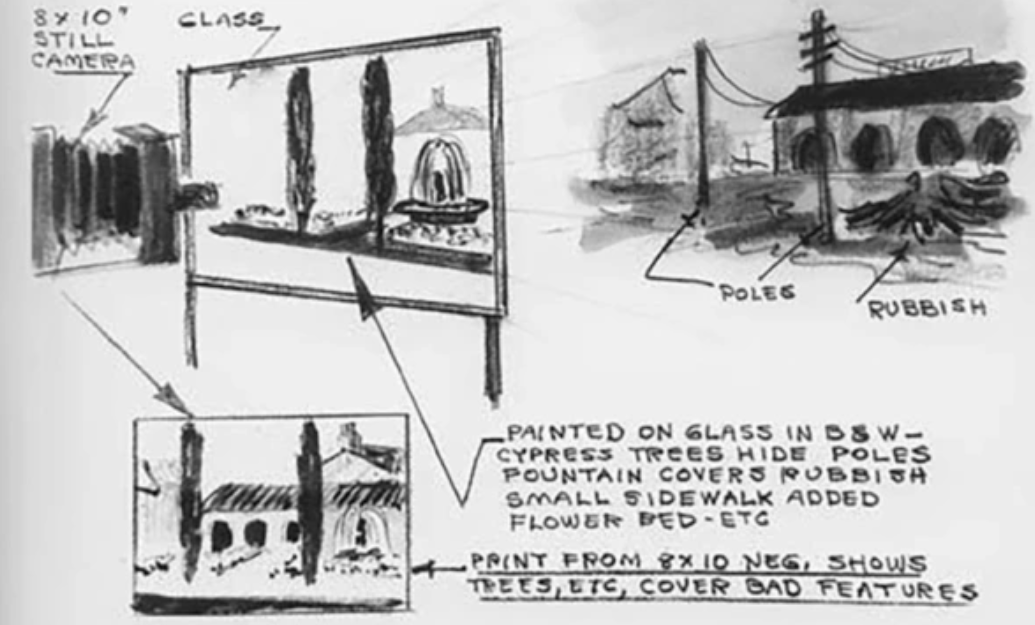 8 X 10"
STILL
CAMERA
GLASS
POLES
RUBBISH
PAINTED ON GLASS IN B&W—
CYPRESS TREES HIDE POLES
FOUNTAIN COVERS RUBBISH
SMALL SIDEWALK ADDED
FLOWER BED-ETC
PRINT FROM 8X10 NEG, SHOWS
TREES, ETC, COVER BAD FEATURES